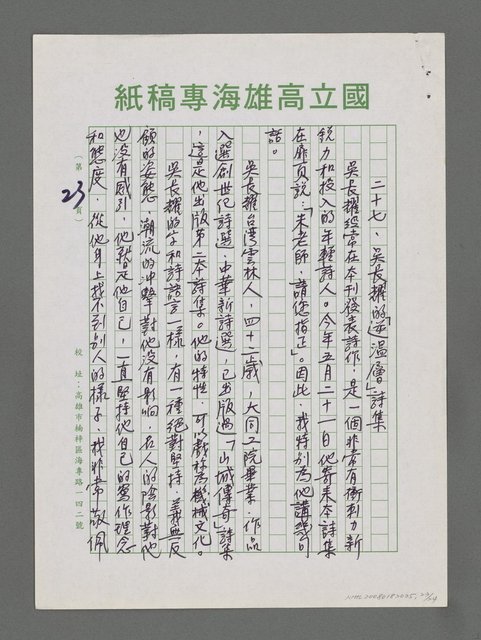 國立高雄海專稿紙
二十七、吳長耀的「逆溫層」詩集
吳長耀經常在本刊發表詩作，是一個非常有衝刺力新
銳力和投入的年輕詩人。今年五月二十一日他寄來本詩集
在扉頁說：「朱老師，請您指正」。因此，我特別為他講幾句
話。
吳長耀台灣雲林人，四十二歲，大同工院畢業，作品
入選創世紀詩選、中華新詩選，已出版過「山城傳奇」詩集
，這是他出版第二本詩集。他的特性，可以戲稱為機械文化。
吳長耀的字和詩語言一樣，有一種絕對堅持，義無反
顧的姿態，潮流的沖擊對他沒有影响，名人的陰影對他
也沒有威引，他就是他自己，一直堅持他自己的寫作理念
和態度，從他身上找不到別人的樣子，我非常敬佩
（第23頁）
校址：高雄市楠梓區海專路一四二號
NMTL20080182025, 23/24